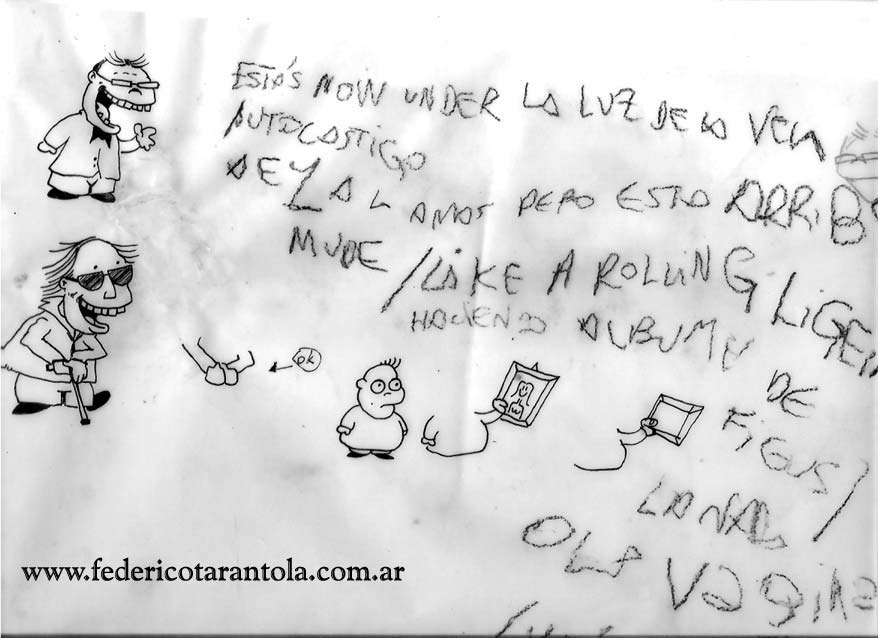 ESTÁS NOW UNDER LA LUZ DE LA VELA
AUTOCASTIGO
DE Y LA L AMAS PERO ESTO ARRIB
MUDE /LIKE A ROLLING
HACIENDO ALBUM
LIGER
DE
FIGUS/
LA NAL
O LA
VAGINA
ok
www.federicotarantola.com.ar